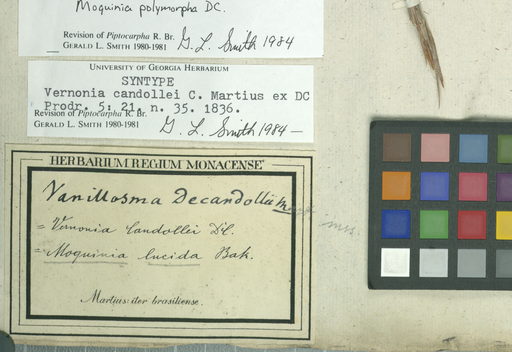 Moquinia polymorpha DC.
Revision of Piptocarpha R. Br.
GERALD L. SMITH 1980-1981 G. L. Smith 1984
UNIVERSITY OF GEORGIA HERBARIUM
SYNTYPE
Vernonia candollei C. Martius ex DC
Prodr. 5: 21. n. 35. 1836.
Revision of Piptocarpha R. Br.
GERALD L. SMITH 1980-1981 G. L. Smith 1984-
HERBARIUM REGIUM MONACENSE
Vanillosma Decandollii Mart. mss.
= Vernonia Candollei DC.
= Moquinia lucida Bak.
Martius: iter brasiliense.